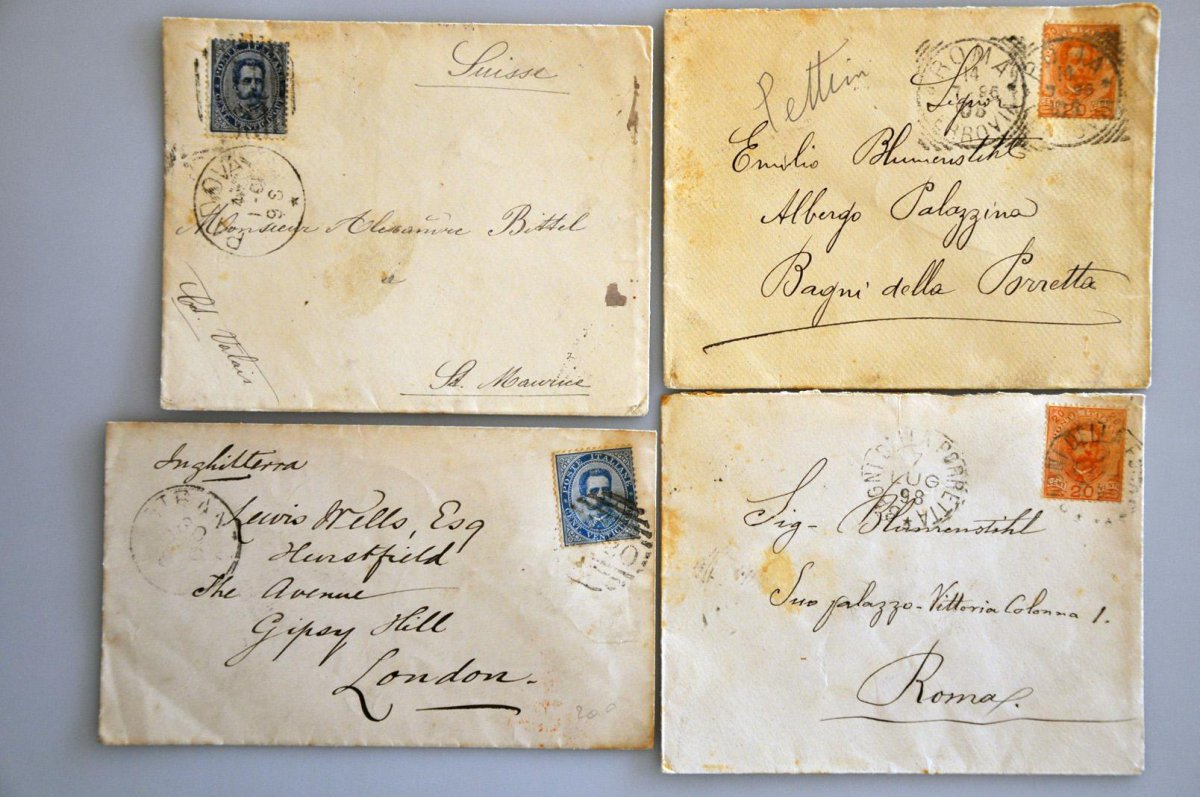 POSTE ITALIANE
Suisse
PADOVA
Monsieur Alexandre Bittel
St. Maurice
Ct. Valais
Pettein
ROMA
FERROVIA
Signor
Emilio Blumenstihl
Albergo Palazzina
Bagni della Porretta
Inghilterra
POSTE ITALIANE
CENT. VENTICINQUE
Lewis Wells, Esq
Hurstfield
The Avenue
Gipsy Hill
London
200
20
BAGNI DELLA PORRETTA
LUG
98
20
Sig- Blumenstihl
Suo palazzo-Vittoria Colonna 1.
Roma